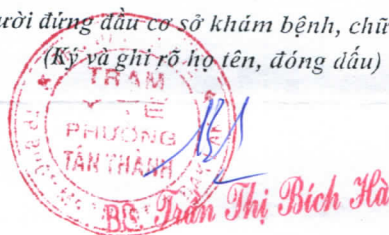 ười đứng đầu cơ sở khám bệnh, chữ
(Ký và ghi rõ họ tên, đóng dấu)
TRẠM
Y TẾ
PHƯỜNG
TÂN THÀNH
BS. Trần Thị Bích Hà